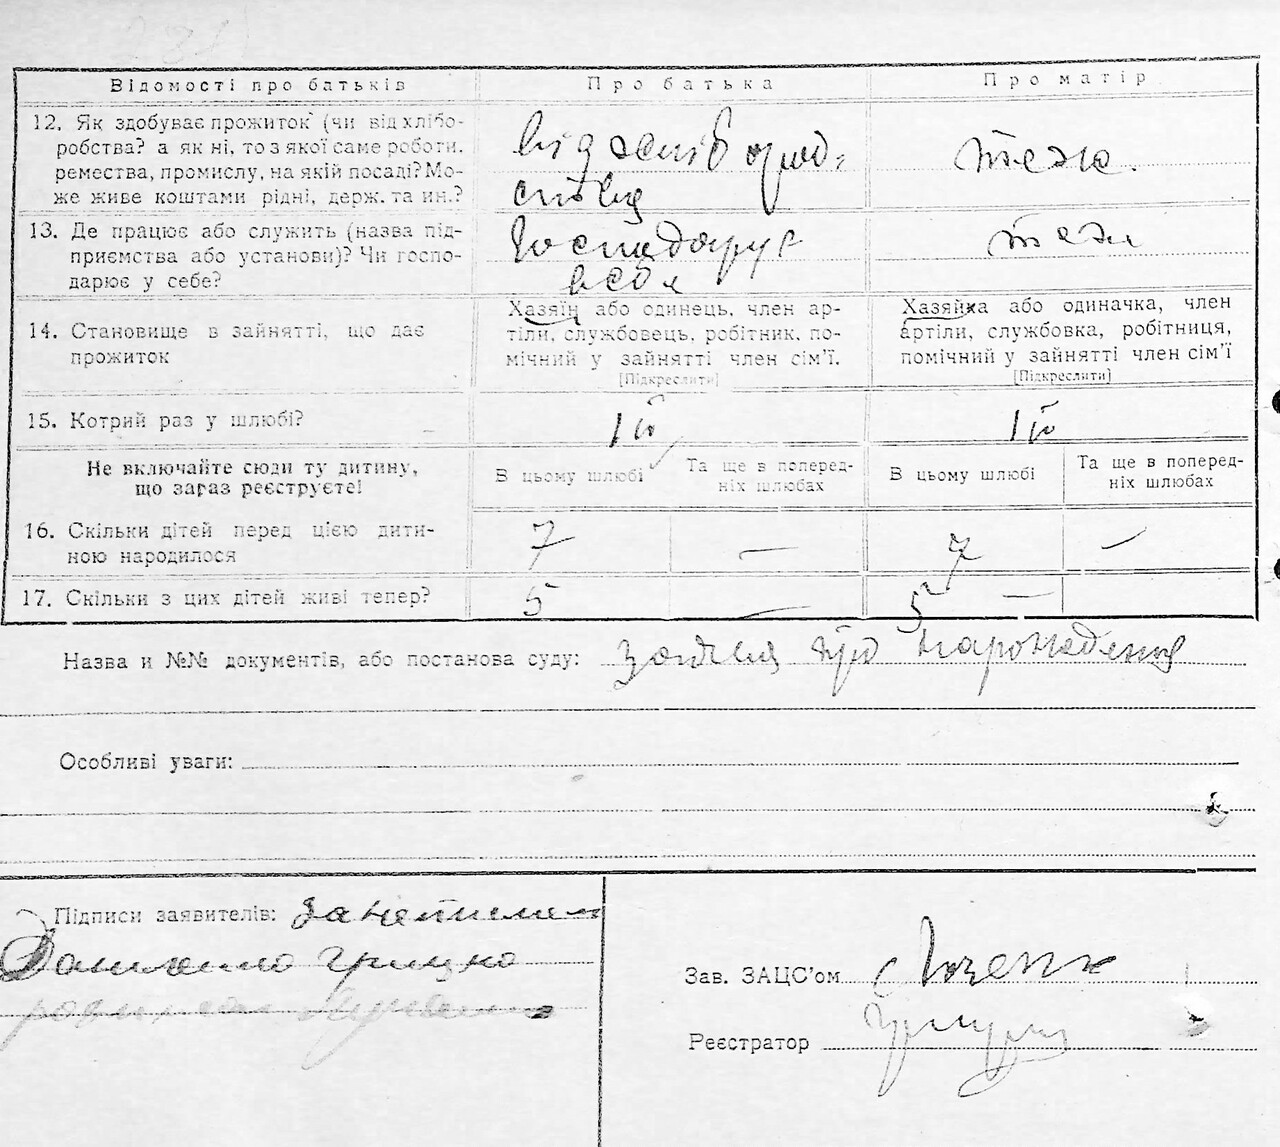 Відомості про батьків
Про батька
Про матір
12. Як здобуває прожиток (чи від хлібо-
робства? а як ні, то з якої саме роботи,
ремества, промислу, на якій посаді? Мо-
же живе коштами рідні, держ. та ин.?
від хлібороб-
ства
теж
13. Де працює або служить (назва під-
приємства або установи)? Чи госпо-
дарює у себе?
Господарує
в себе
теж
14. Становище в зайнятті, що дає
прожиток
Хазяїн або одинець, член ар-
тіли, службовець, робітник, по-
мічний у зайнятті член сім'ї.
[Підкреслити]
Хазяйка або одиначка, член
артіли, службовка, робітниця,
помічний у зайнятті член сім'ї
[Підкреслити]
15. Котрий раз у шлюбі?
1й
1й
Не включайте сюди ту дитину,
що зараз реєструєте!
В цьому шлюбі
Та ще в поперед-
ніх шлюбах
В цьому шлюбі
Та ще в поперед-
ніх шлюбах
16. Скільки дітей перед цією дити-
ною народилося
7
—
7
—
17. Скільки з цих дітей живі тепер?
5
—
5
—
Назва и №№ документів, або постанова суду: заява про народження
Особливі уваги:
Підписи заявителів:
Грицко
Зав. ЗАЦС'ом
Реєстратор